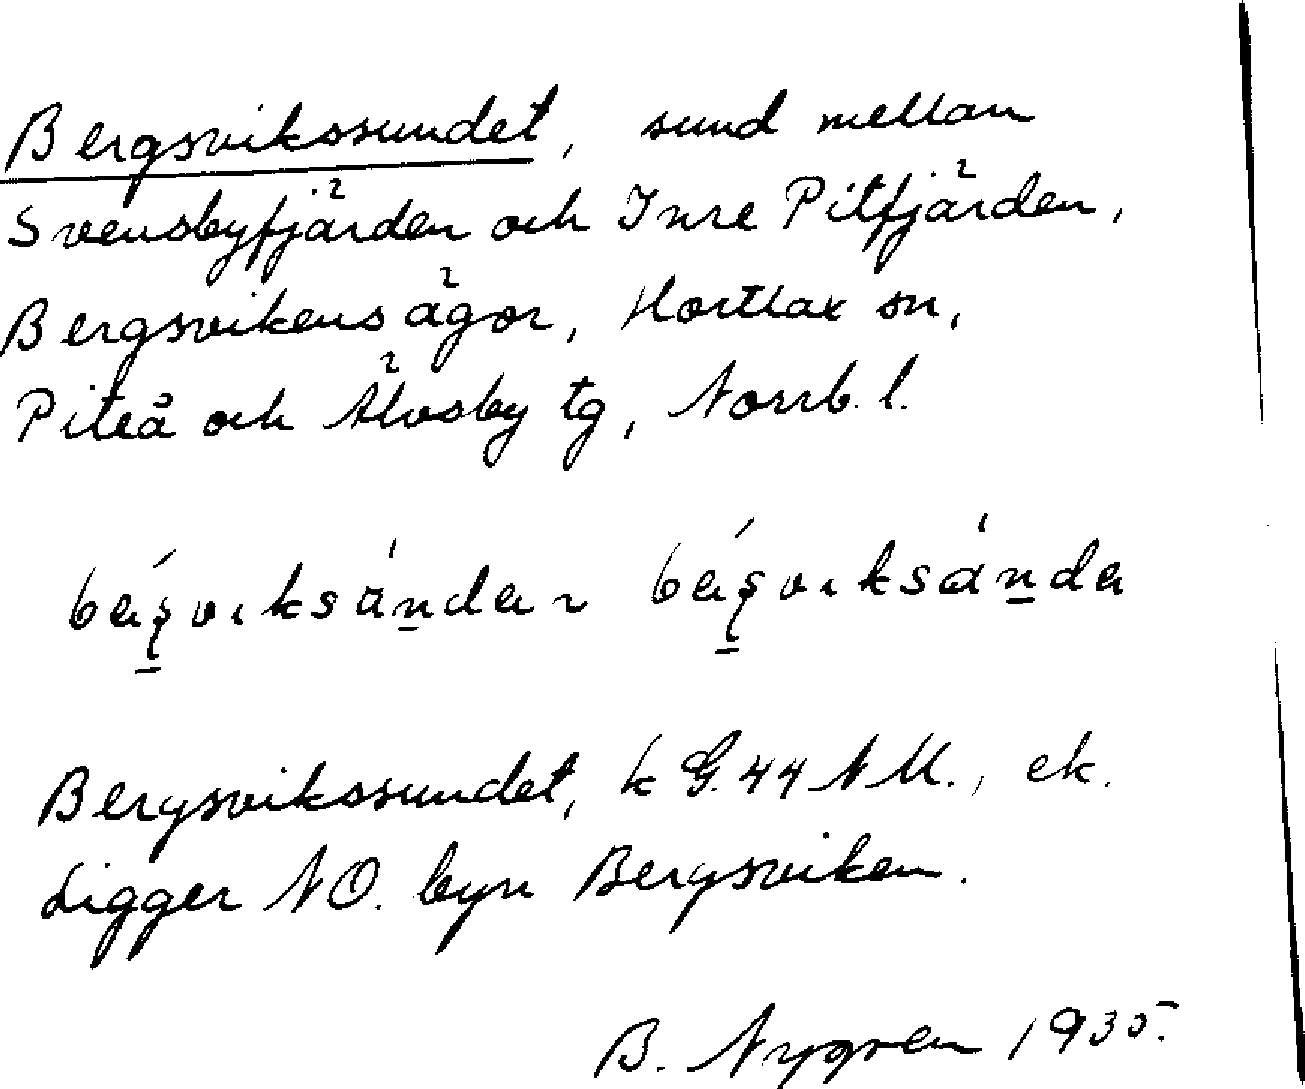 Bergsvikssundet, sund mellan
Svensbyfjärden och Inre Pitfjärden,
Bergsvikens ägor, Hortlax sn,
Piteå och Älvsby tg, Norrb. l.
Bergsvikssundet, k G. 44 N M., ek.
Ligger NO. byn Bergsviken.
B. Nygren 1935.